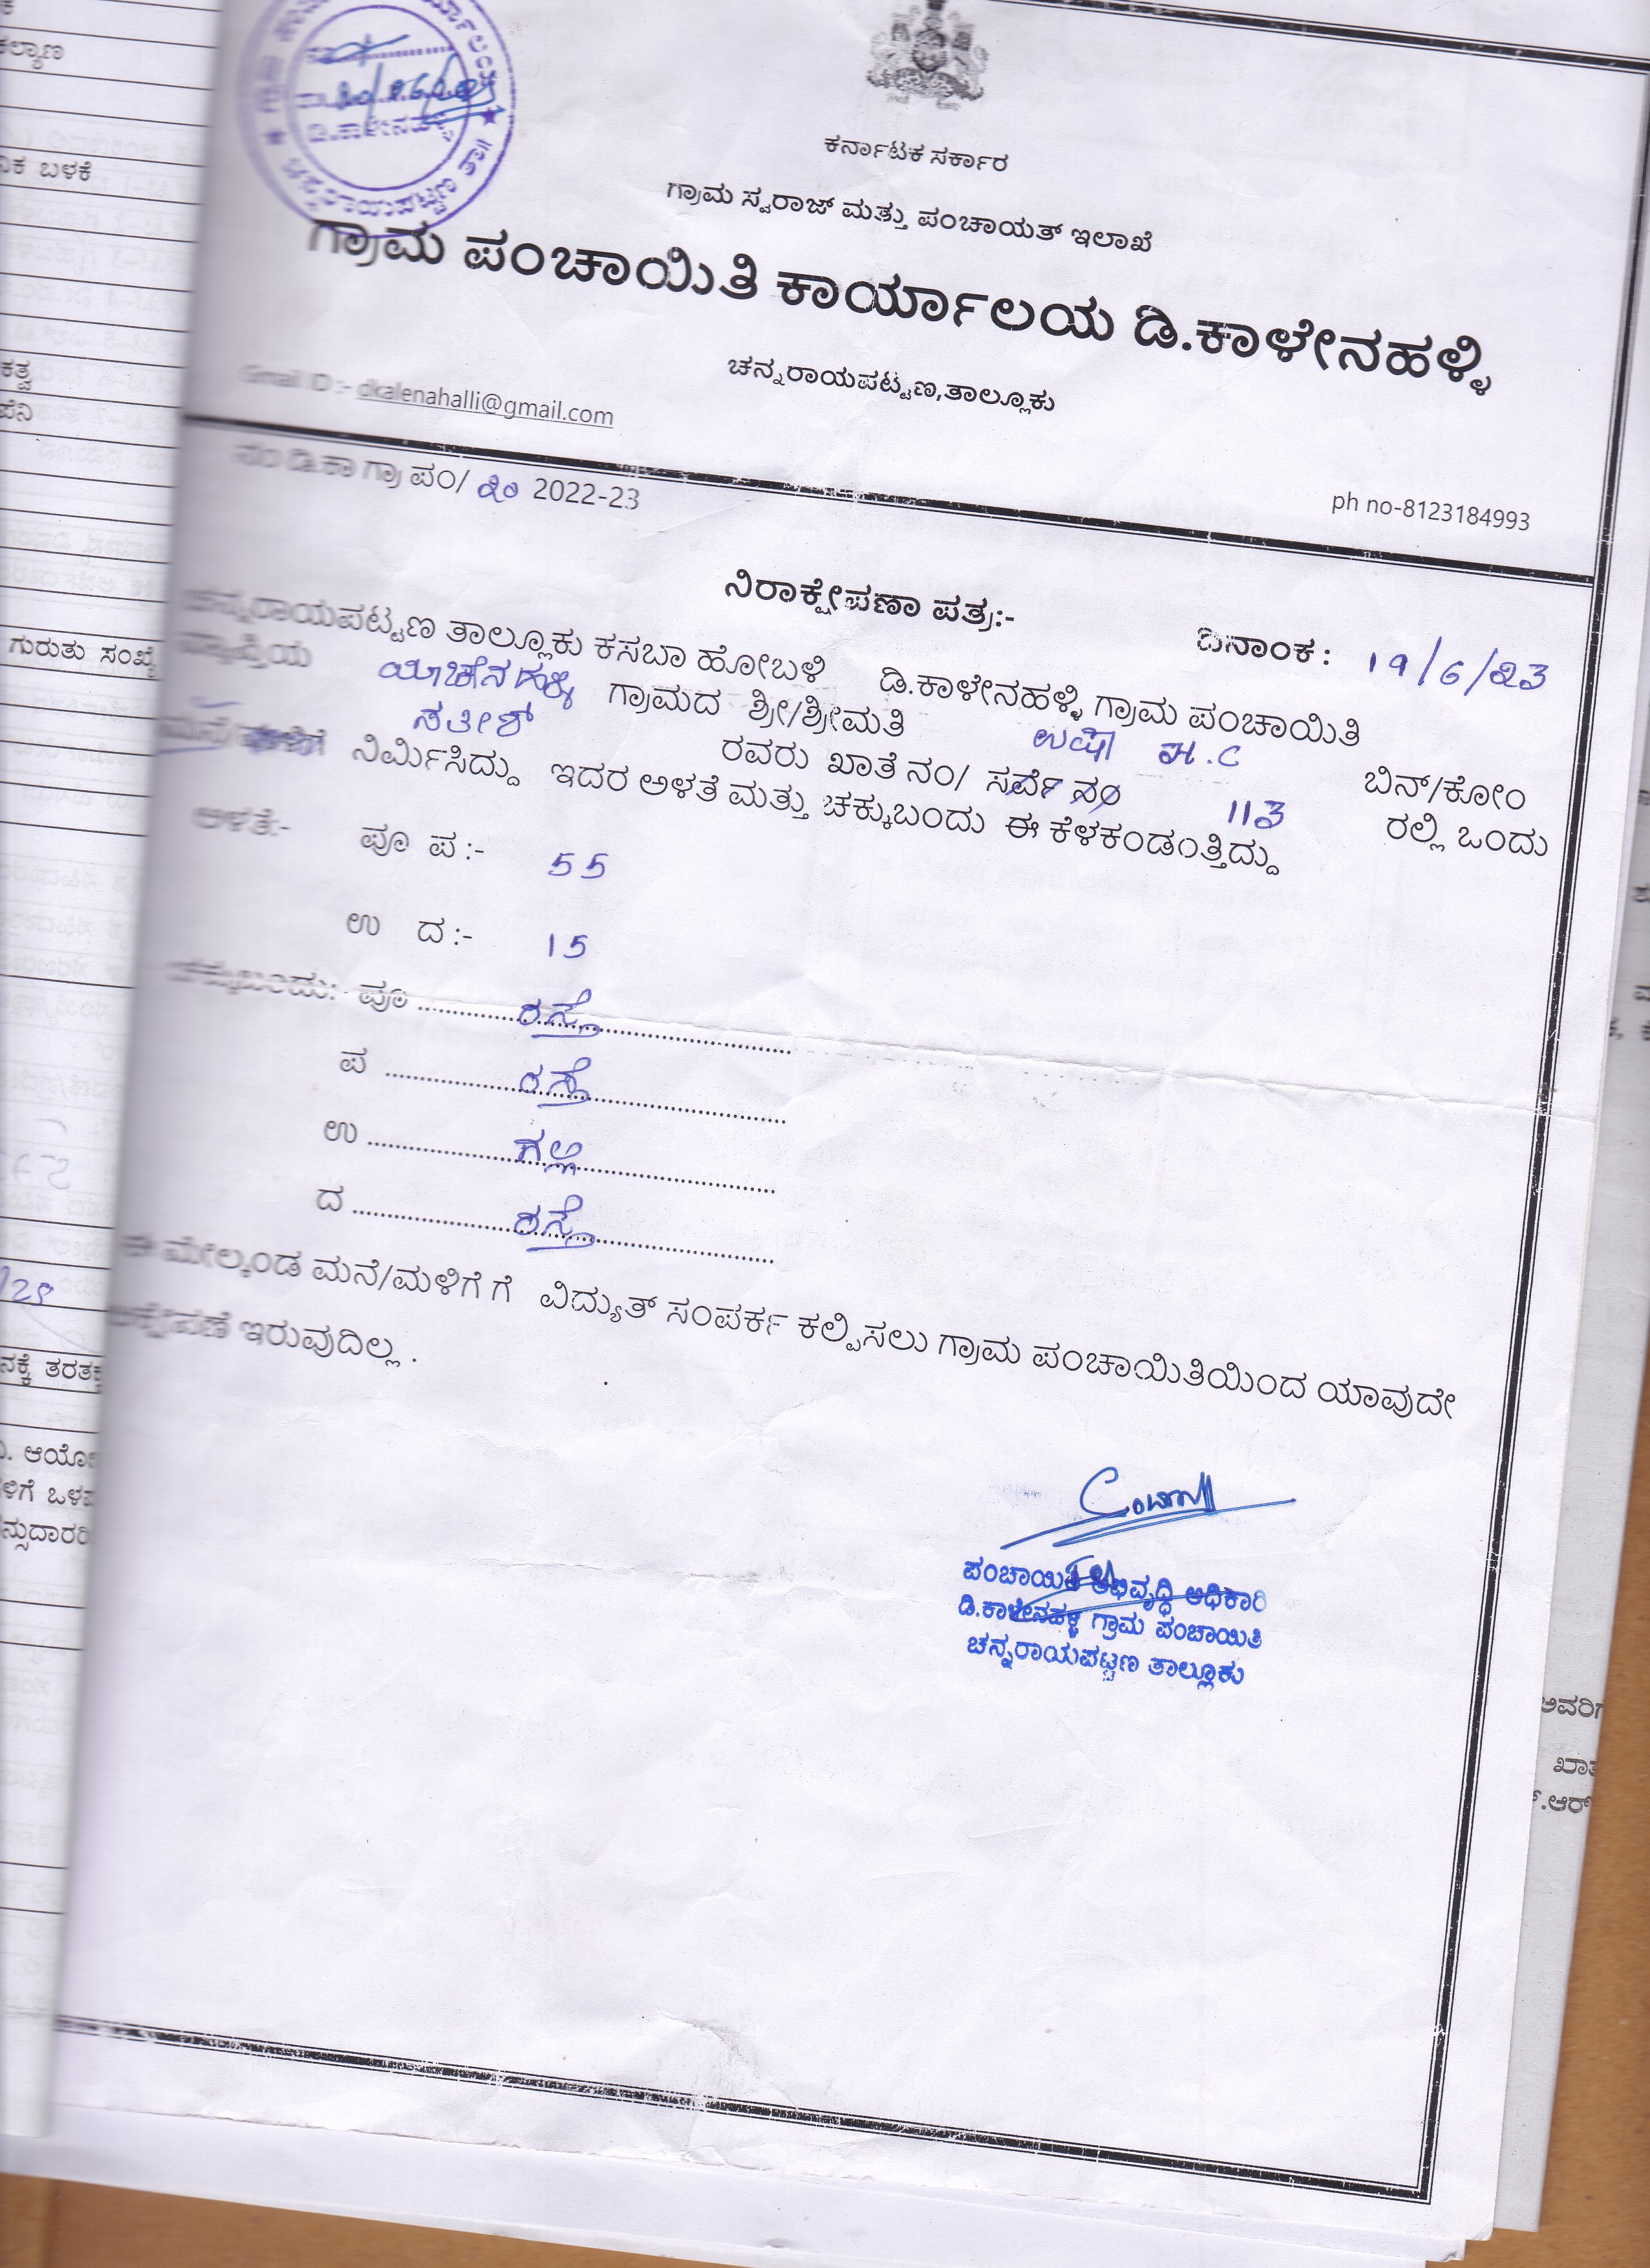 ಕರ್ನಾಟಕ ಸರ್ಕಾರ
ಗ್ರಾಮ ಸ್ವರಾಜ್ ಮತ್ತು ಪಂಚಾಯತ್ ಇಲಾಖೆ
ಗ್ರಾಮ ಪಂಚಾಯಿತಿ ಕಾರ್ಯಾಲಯ ಡಿ.ಕಾಳೇನಹಳ್ಳಿ
ಚನ್ನರಾಯಪಟ್ಟಣ,ತಾಲ್ಲೂಕು
Gmail ID :- dkalenahalli@gmail.com
ph no-8123184993
ನಂ ಡಿ.ಕಾ ಗ್ರಾ ಪಂ/ 20 2022-23
ನಿರಾಕ್ಷೇಪಣಾ ಪತ್ರ:-
ದಿನಾಂಕ : 19/6/23
ಚನ್ನರಾಯಪಟ್ಟಣ ತಾಲ್ಲೂಕು ಕಸಬಾ ಹೋಬಳಿ ಡಿ.ಕಾಳೇನಹಳ್ಳಿ ಗ್ರಾಮ ಪಂಚಾಯಿತಿ
ವ್ಯಾಪ್ತಿಯ ಯಾಚೇನಹಳ್ಳಿ ಗ್ರಾಮದ ಶ್ರೀ/ಶ್ರೀಮತಿ ಉಷಾ H.C ಬಿನ್/ಕೋಂ
ಸತೀಶ್ ರವರು ಖಾತೆ ನಂ/ ಸರ್ವೆ ನಂ 113 ರಲ್ಲಿ ಒಂದು
ಮನೆ/ಮಳಿಗೆ ನಿರ್ಮಿಸಿದ್ದು ಇದರ ಅಳತೆ ಮತ್ತು ಚಕ್ಕುಬಂದು ಈ ಕೆಳಕಂಡಂತ್ತಿದ್ದು
ಅಳತೆ:- ಪೂ ಪ :- 55
ಉ ದ :- 15
ಚಕ್ಕುಬಂದು: ಪೂ ರಸ್ತೆ
ಪ ರಸ್ತೆ
ಉ ಗಲ್ಲಿ
ದ ರಸ್ತೆ
ಈ ಮೇಲ್ಕಂಡ ಮನೆ/ಮಳಿಗೆ ಗೆ ವಿದ್ಯುತ್ ಸಂಪರ್ಕ ಕಲ್ಪಿಸಲು ಗ್ರಾಮ ಪಂಚಾಯಿತಿಯಿಂದ ಯಾವುದೇ
ಆಕ್ಷೇಪಣೆ ಇರುವುದಿಲ್ಲ .
ಪಂಚಾಯಿತಿ ಅಭಿವೃದ್ಧಿ ಅಧಿಕಾರಿ
ಡಿ.ಕಾಳೇನಹಳ್ಳಿ ಗ್ರಾಮ ಪಂಚಾಯಿತಿ
ಚನ್ನರಾಯಪಟ್ಟಣ ತಾಲ್ಲೂಕು